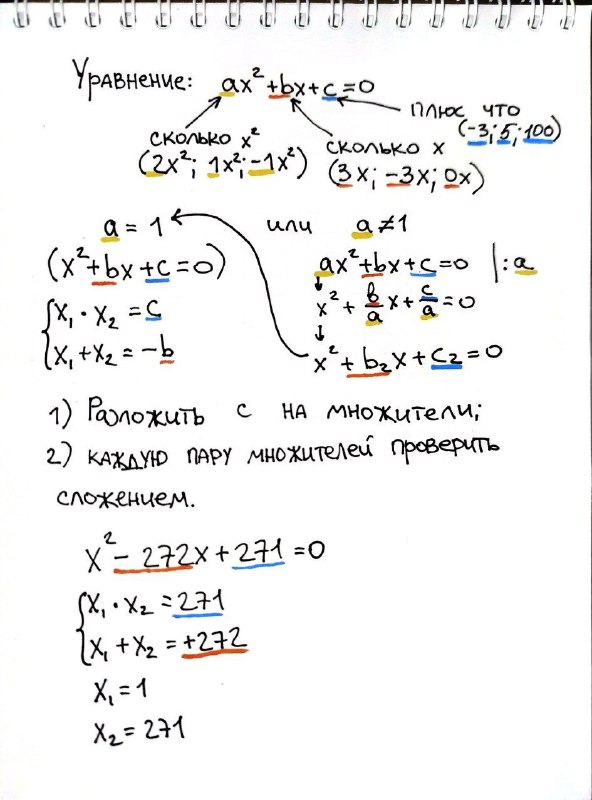 Уравнение: ax² + bx + c = 0
сколько x²
(2x²; 1x²; -1x²)
сколько x
(3x; -3x; 0x)
плюс что
(-3; 5; 100)
a = 1 или a ≠ 1
(x² + bx + c = 0)
{x₁ · x₂ = c
{x₁ + x₂ = -b
ax² + bx + c = 0 | : a
x² + b/a x + c/a = 0
x² + b₂x + c₂ = 0
1) Разложить c на множители;
2) каждую пару множителей проверить
сложением.
x² - 272x + 271 = 0
{x₁ · x₂ = 271
{x₁ + x₂ = +272
x₁ = 1
x₂ = 271